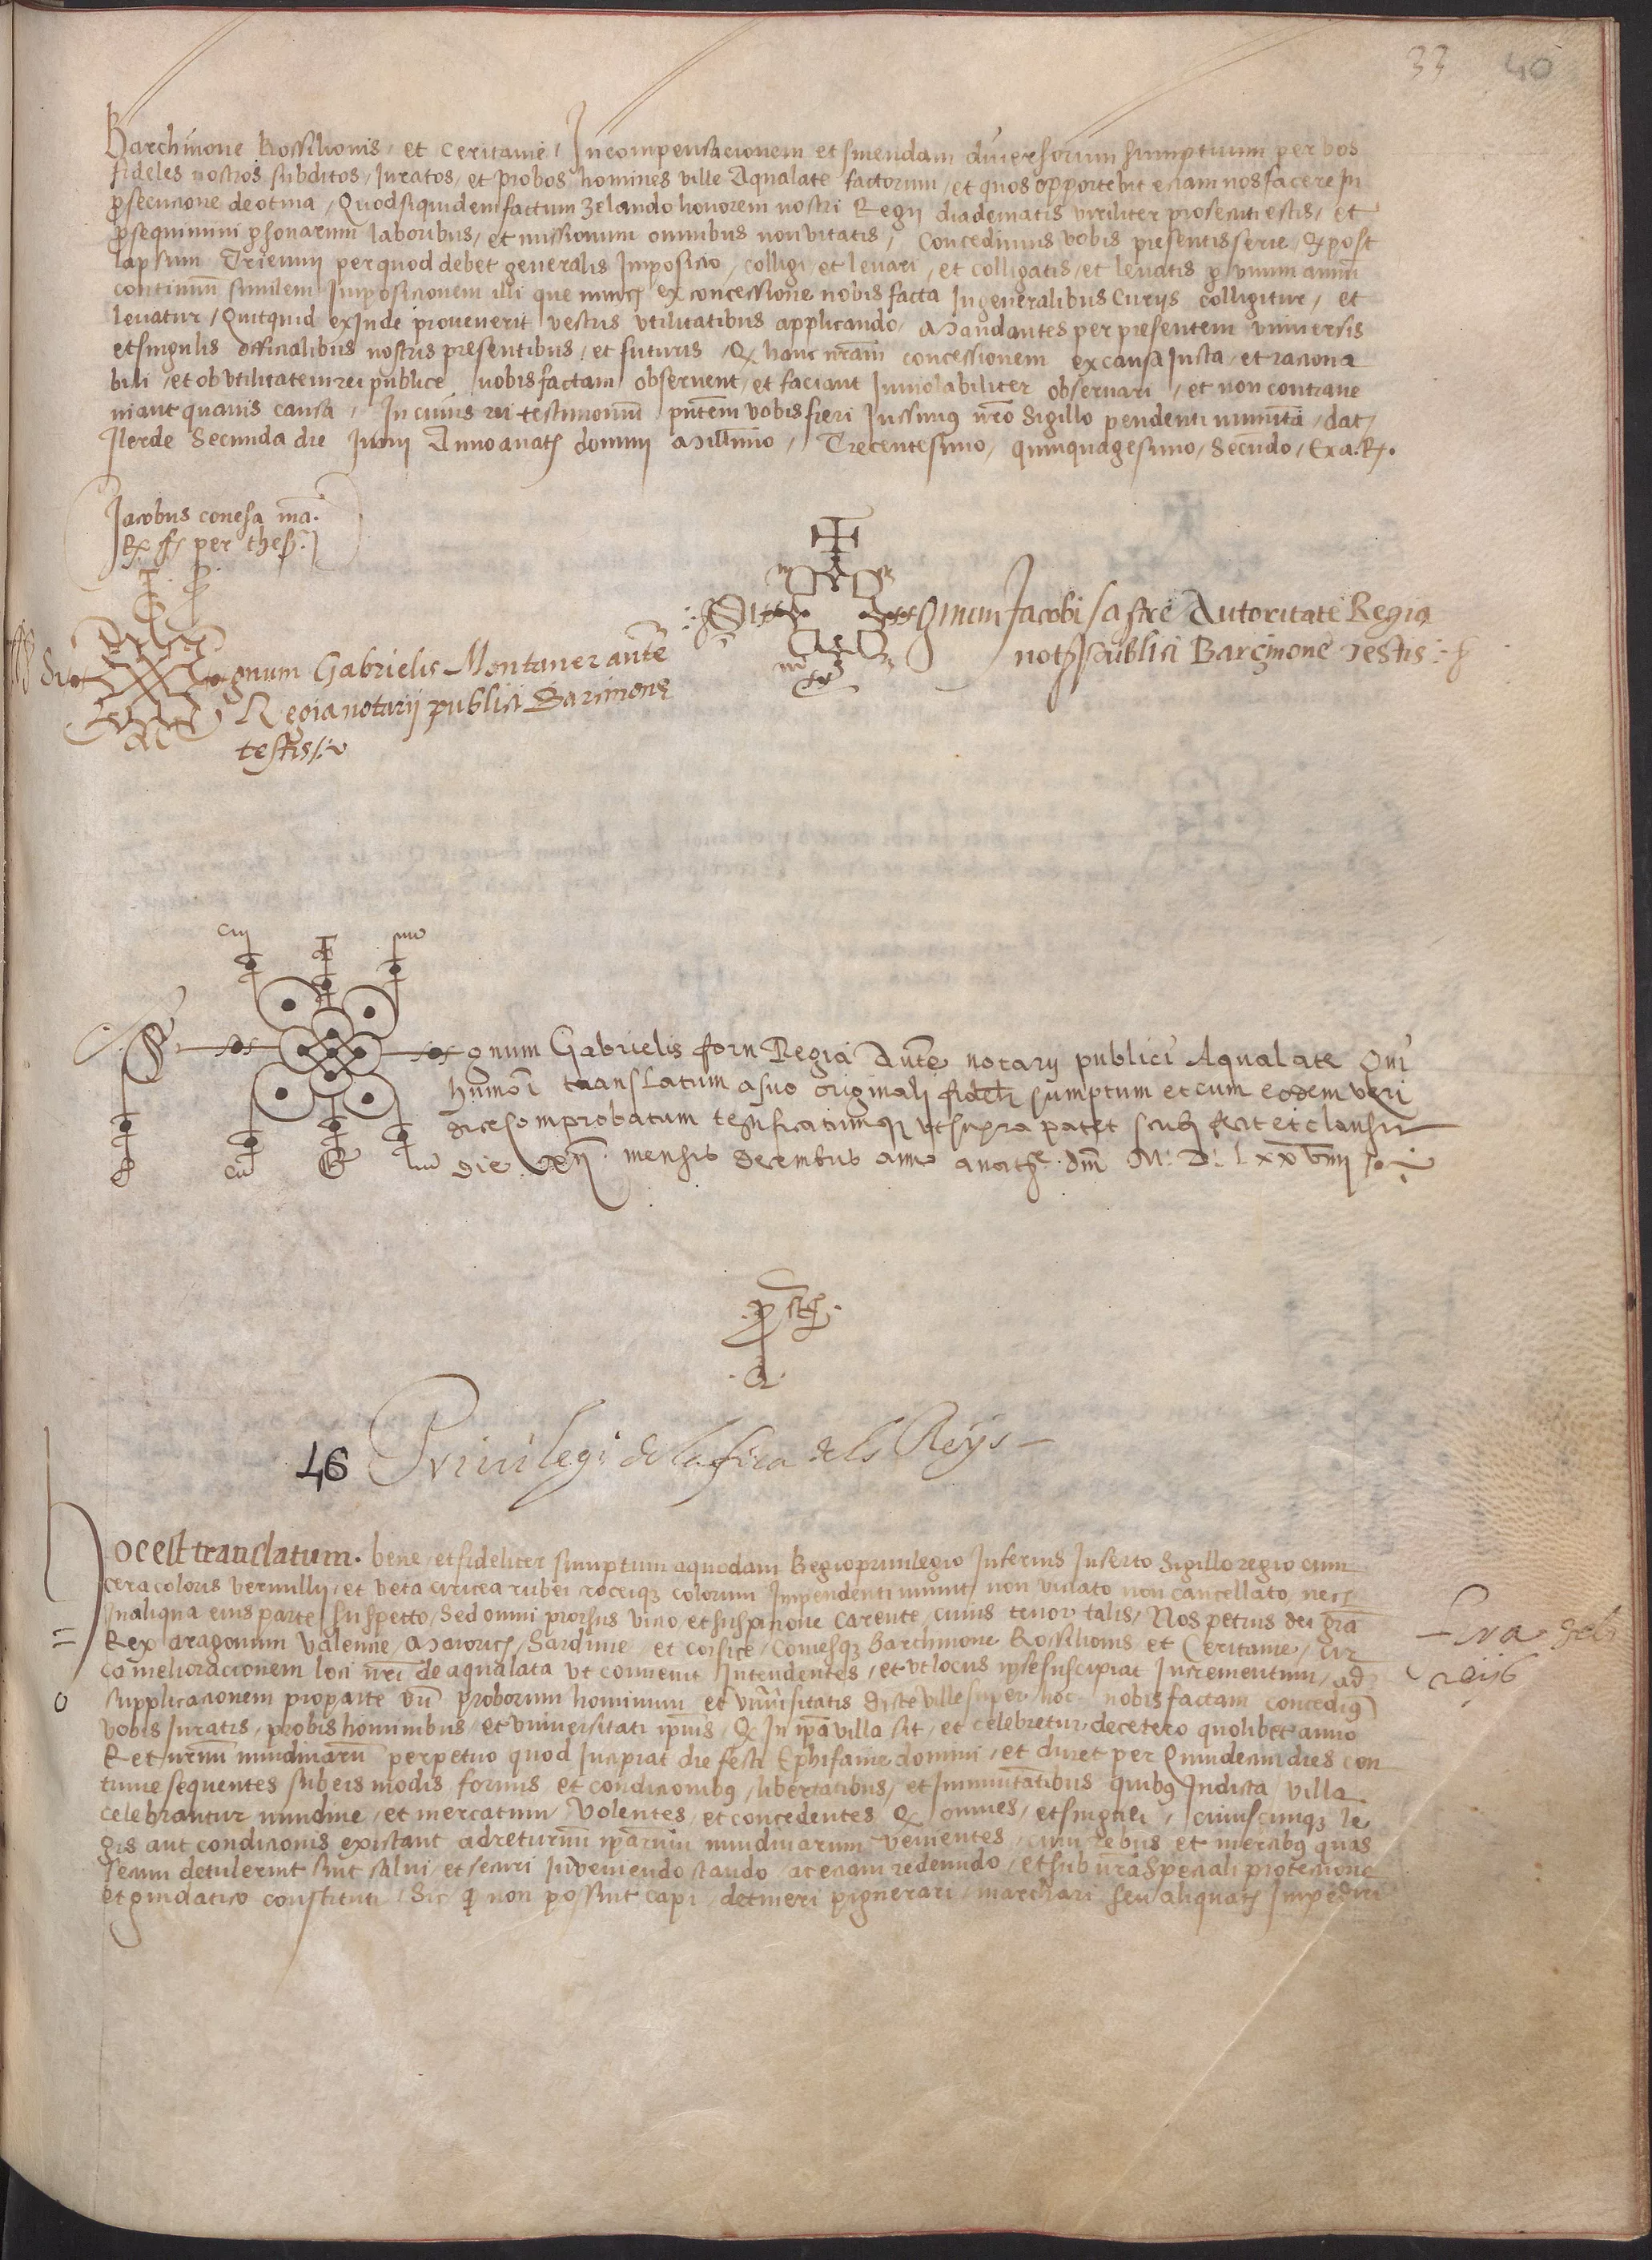 33 40
Barchinone Rossilionis, et Ceritanie, In compensacionem et smendam diuersorum sumptuum per vos
fideles nostros subditos, Iuratos, et probos homines ville Aqualate factorum, et quos opportebit eciam nos facere in
ꝓsecucione de otina, Quod siquidem factum Zelando honorem nostri Regij diadematis viriliter prosecuti estis, et
ꝓsequimini ꝑsonarum laboribus, et missionum omnibus non vitatis, Concedimus vobis presentis serie, Qꝫ post
lapsum Triennij per quod debet generalis Imposicio, colligi, et leuari, et colligatis, et leuatis ꝑ vnum annũ
continuũ similem Imposicionem illi que nuncꝫ ex concessione nobis facta In generalibus Curijs colligitur, et
leuatur, Quitquid exInde prouenerit vestris vtilitatibus applicando, Mandantes per presentem vniuersis
et singulis officialibus nostris presentibus, et futuris, Qꝫ hanc nr̃am concessionem ex causa Iusta, et raciona
bili, et ob vtilitatem rei publice, vobis factam obseruent, et faciant Inuiolabiliter obseruari, et non contraue
niant quauis causa, In cuius rei testimoniũ pñtem vobis fieri Iussimus nr̃o Sigillo pendenti munitã, dat,
Ilerde Secunda die Iunij Anno a natꝫ domini Millimo, Trecentesimo, quinquagesimo, Secundo, Exa. Rꝫ.
Jacobus conesa mã.
Rꝫ ff per thesꝫ.
Sig
gnum Gabrielis Montaner aut̃e
Regia notarij publici Barcinone
testis
Sig
gnum Jacobi sastre Autoritate Regia
notꝫ publici Barcinone testis
gnum Gabrielis forn Regia Aut̃e notarij publici Aqualate Qui
hm̃oi translatum a suo originali fideli sumptum et cum eodem veri
dice comprobatum testificatumqꝫ vt supra patet scribi fecit et clausit
die xxij mensis decembris anno a natꝫe dm̃ M. D. Lxxviiij
46 Priuilegi de la fira dels Reÿs
Hoc est translatum. bene, et fideliter sumptum a quodam Regio priuilegio Inferius Inserto Sigillo regio cum
cera coloris vermillij, et veta ciricea rubei croceiqꝫ colorum Inpendenti munit, non viciato non cancellato, necꝫ
In aliqua eius parte suspetto, Sed omni prorsus vicio, et suspicione carente, cuius tenor talis, Nos petrus dei gr̃a
Rex aragonum Valencie, Maioricꝫ, Sardinie, et corsice, Comesqꝫ Barchinone Rossilionis et Ceritanie, Cir
ca melioracionem loci nr̃i de aqualata vt conuenit Intendentes, et vt locus ipse suscipiat Incrementum, ad
supplicacionem pro parte vr̃i proborum hominum et vniũsitatis dicte ville super hoc nobis factam concedimꝰ
vobis Iuratis, probis hominibus, et vniuersitati ipsius, Qꝫ In ip̃a villa sit, et celebretur de cetero quolibet anno
Returnũ nundinarũ perpetuo quod Incipiat die festi Ephifanie domini, et duret per Quindecim dies con
tinue sequentes sub eis modis formis et condicionibꝰ, libertatibus, et Inmunitatibus quibꝰ In dicta villa
celebrantur nundine, et mercatum, Volentes, et concedentes Qꝫ omnes, et singuli, cuiuscunqꝫ le
gis aut condicionis existant ad returnũ ip̃arum nundinarum venientes, cum rebus et mercibꝰ quas
secum detulerint sint salui, et securi In veniendo stando, ac eciam redeundo, et sub nr̃a Speciali protectione
et guidatico constituti, Sic qꝫ non possint capi, detineri pignerari, marchari seu aliquatꝫ Impediri
Fira dels
reijs